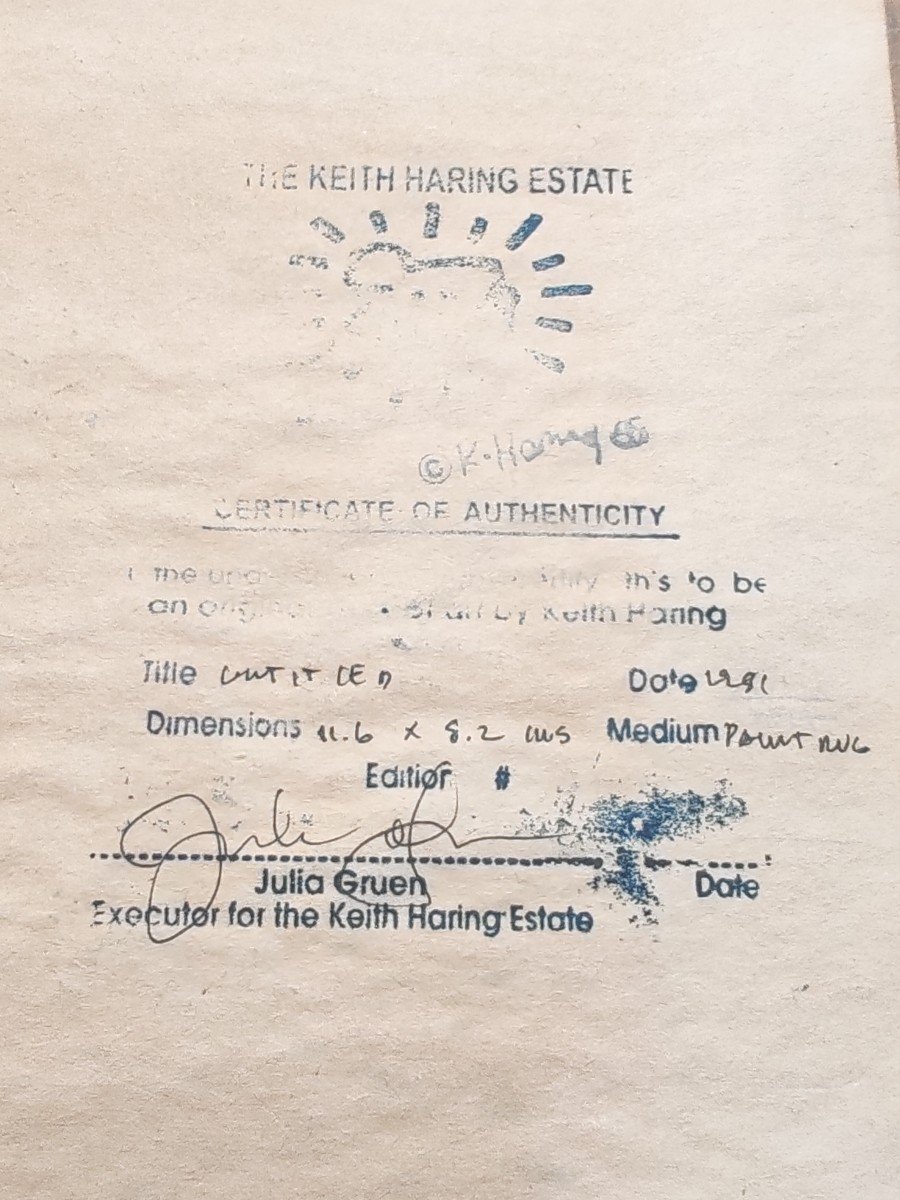 THE KEITH HARING ESTATE
© K. Haring
CERTIFICATE OF AUTHENTICITY
I the this to be
an of art by Keith Haring
Title UNTITLED Date 1981
Dimensions 11.6 x 8.2 ms Medium PAINTING
Edition #
Julia Gruen Date
Executor for the Keith Haring Estate